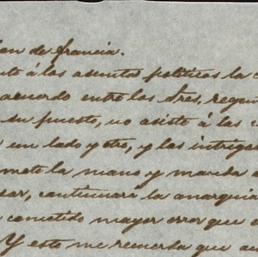 de francia.
á los asuntos politicos la
acuerdo entre los tres,
su puesto, no asiste á las
un lado y otro, y las intrigas
mete la mano y manda
continuará la anarquia
cometido mayor error que
Y esto me recuerda que